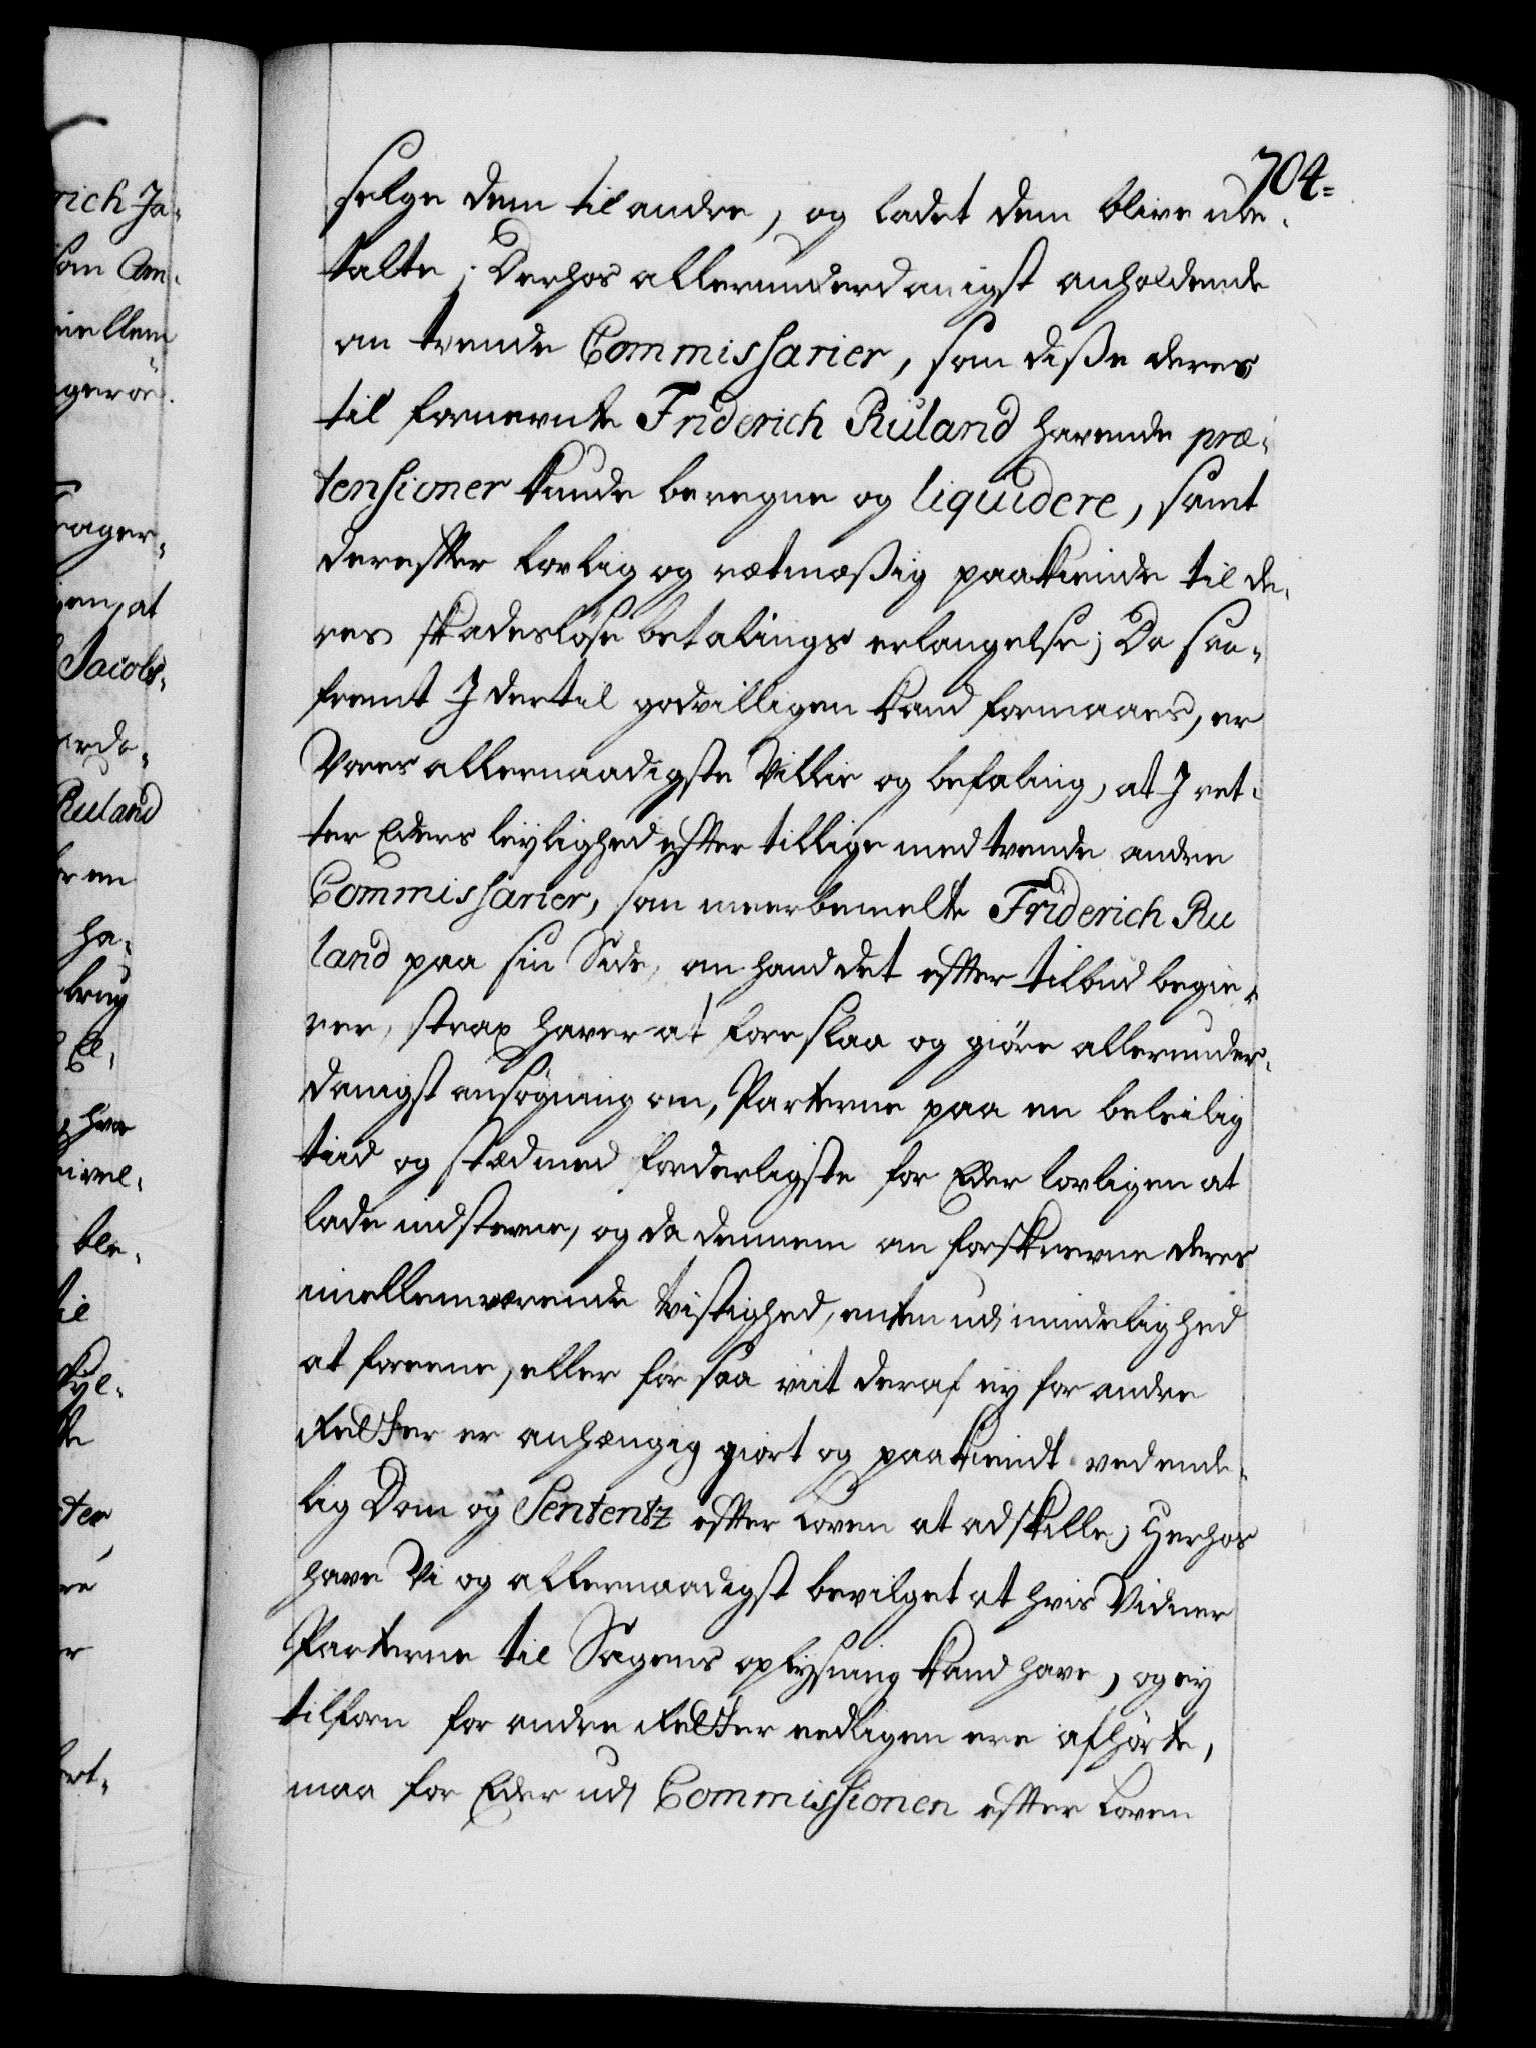 704.
selge dem til andre, og ladet dem blive ube¬
talte; Derhos allerunderdanigst anholdende
om trende Commissarier, som disse deres
til fornevnte Friderich Ruland havende præ¬
tensioner kunde beregne og liquidere, samt
derefter lovlig og rætmæssig paakiende til de¬
res skadesløse betalings erlangelse; Da saa¬
fremt I dertil godvilligen kand formaaes, er
Vores allernaadigste Villie og befaling, at I ret¬
ter Eders leylighed efter tillige med trende andre
Commissarier, som meerbemelte Friderich Ru
land paa sin Side, om hand det efter tilbud begie¬
rer, strax haver at foreslaa og giøre allerunder¬
danigst ansøgning om, Parterne paa en beleilig
tiid og stæd med forderligste for Eder lovligen at
lade indstevne, og da dennem om forskrevne deres
imellemværende tvistighed, enten udi mindelighed
at foreene, eller for saa viit deraf ey for andre
Retter er anhængig giort og paakiendt ved ende¬
lig Dom og Sententz efter Loven at adskille; Herhos
have Vi og allernaadigst bevilget at hvis Vidner
Parterne til Sagens oplysning kand have, og ey
tilforn for andre Retter eedligen ere afhørte,
maa for Eder udi Commissionen efter Loven
rich Ja¬
mellem
ager¬
en, at
Jacobs¬
Ruland
ha¬
ble¬
til